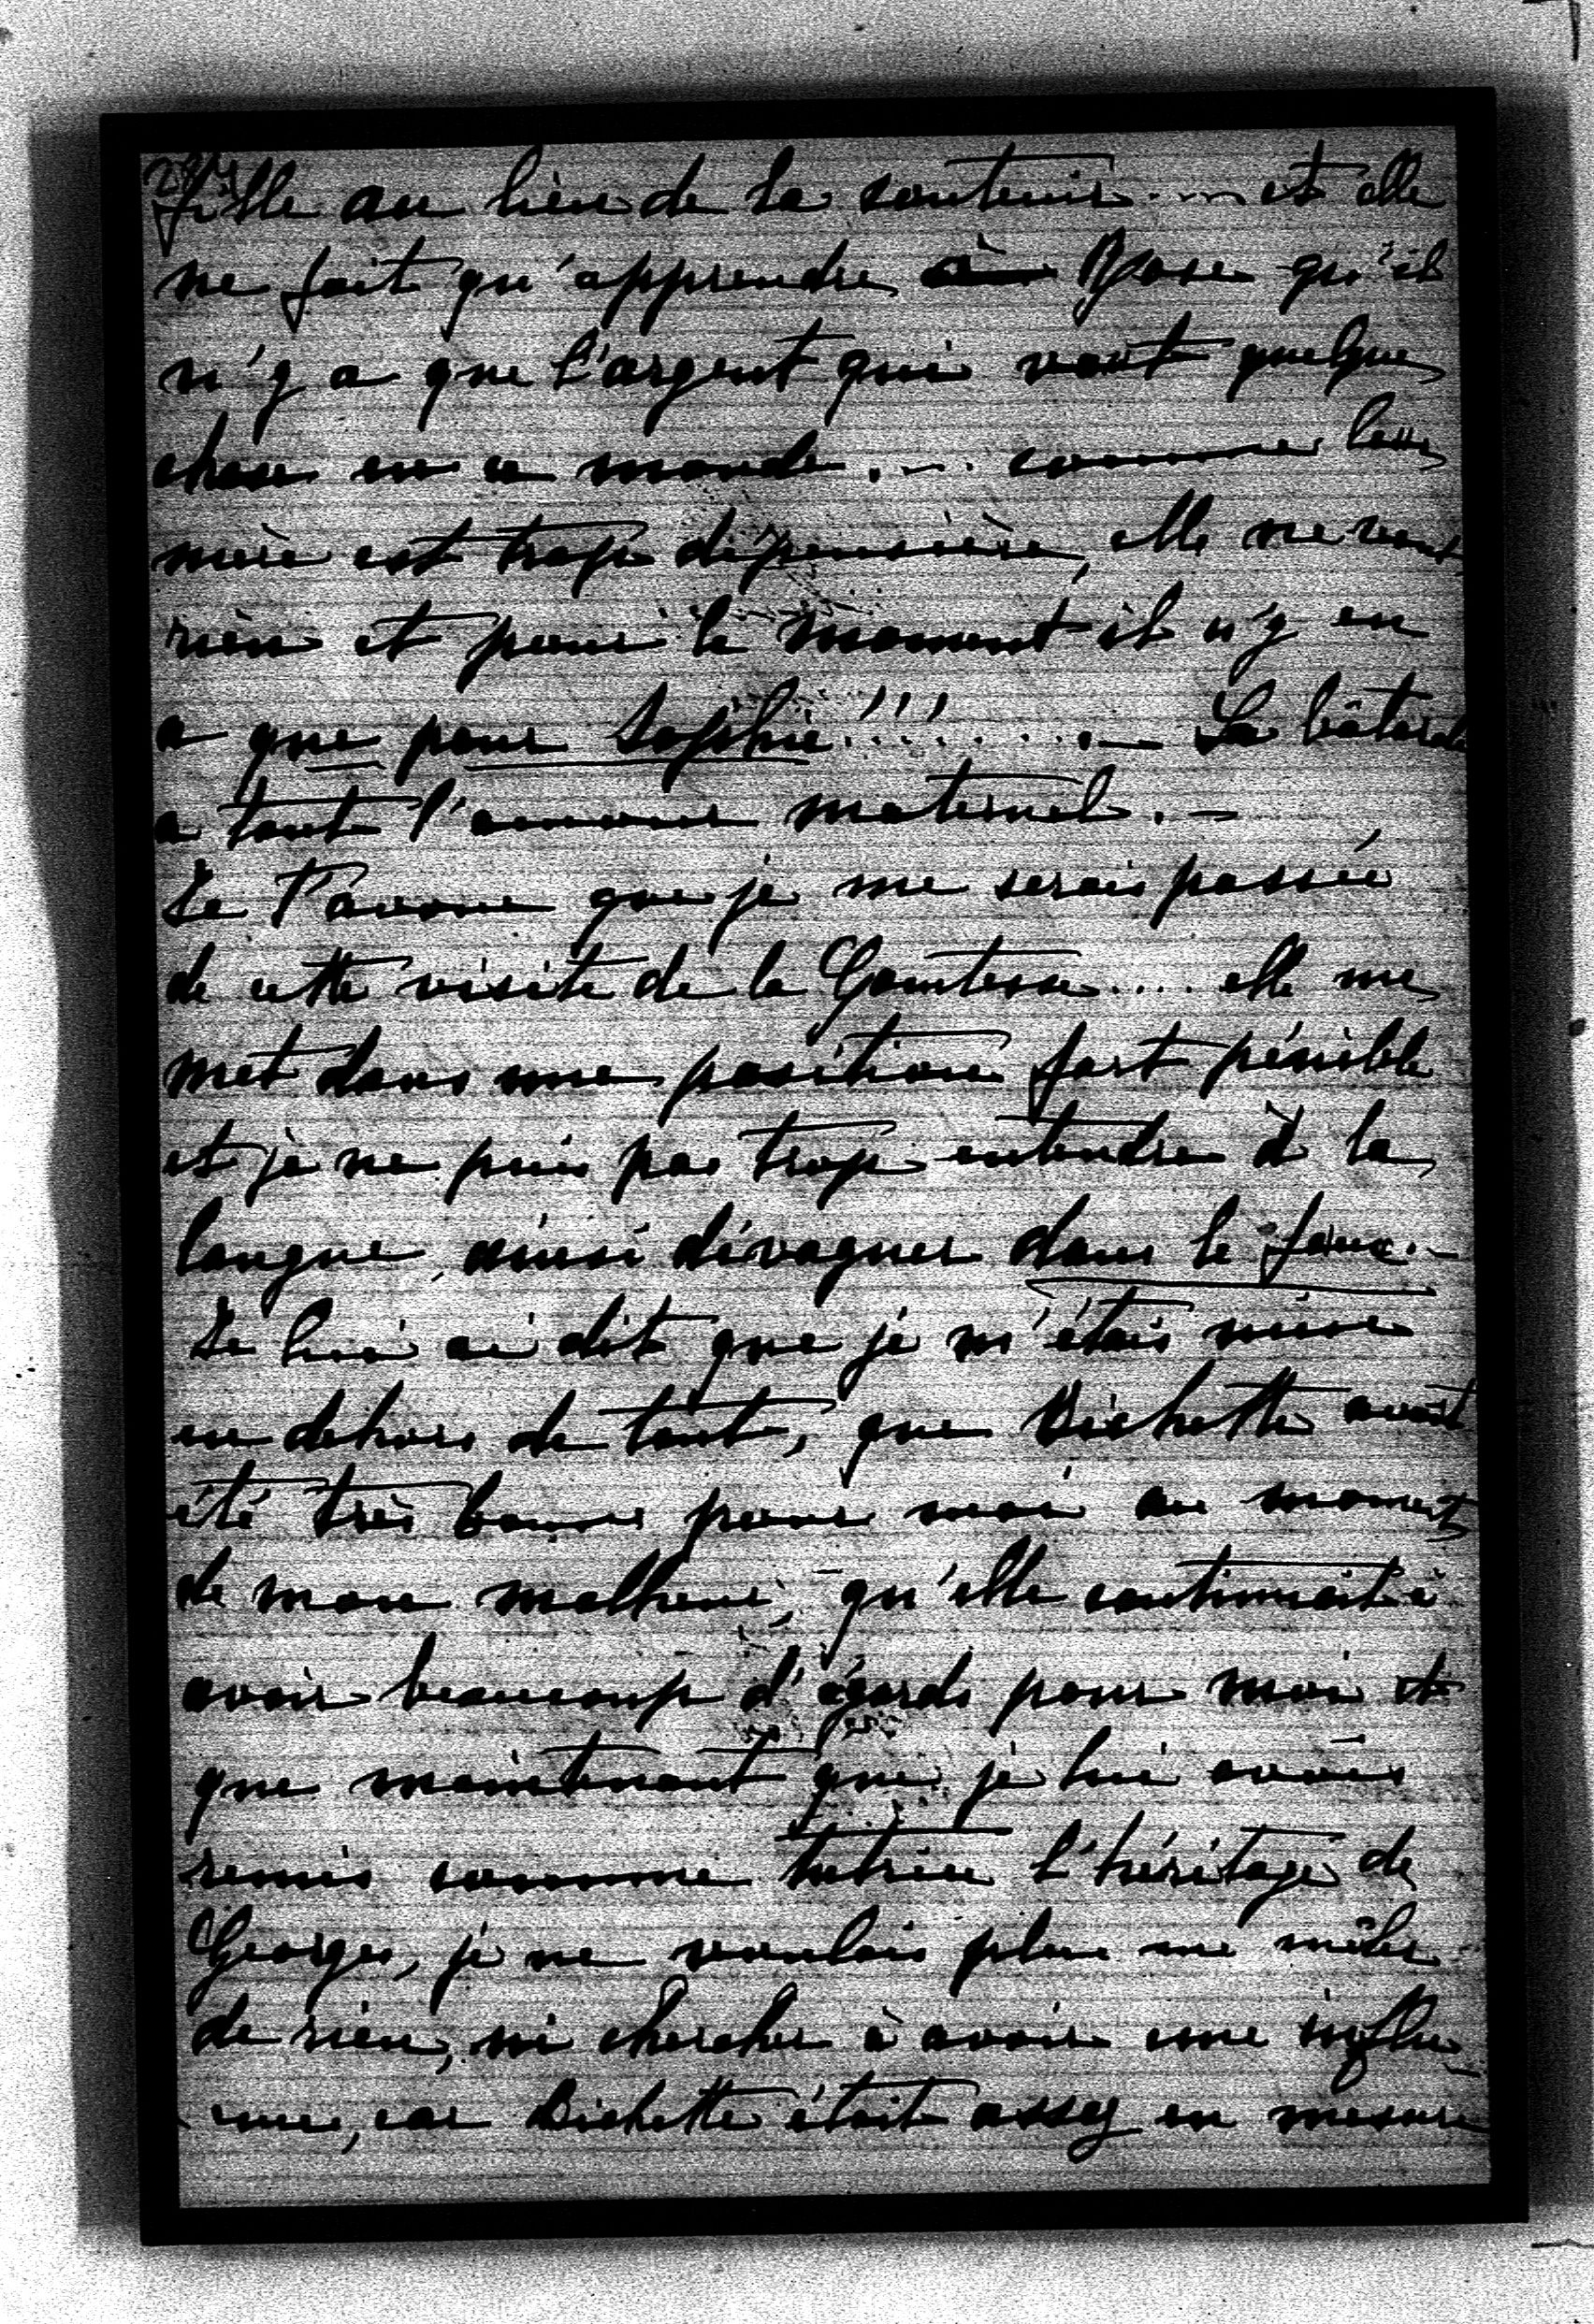 fille au lieu de la soutenir.... et elle
ne fait qu'apprendre à Rose qu'il
n'y a que l'argent qui vaut quelque
chose en ce monde.... comme leur
mère est trop dépensière, elle ne vaut
rien et pour le moment il n'y en
a que pour Sophie!!!..... La bâtarde
a tout l'amour maternel. –
Je t'avoue que je me serais passée
de cette visite de la Comtesse.... elle me
met dans une position fort pénible
et je ne puis pas trop entendre à la
longue, ainsi divaguer dans le faux. –
Je lui ai dit que je m'étais mise
en dehors de tout, que Bichette avait
été très bonne pour moi au moment
de mon malheur, qu'elle continuait à
avoir beaucoup d'égards pour moi et
que maintenant que je lui avais
remis comme tutrice l'héritage de
Georges, je ne voulais plus me mêler
de rien, ni chercher à avoir une influ-
ence, car Bichette était assez en mesure